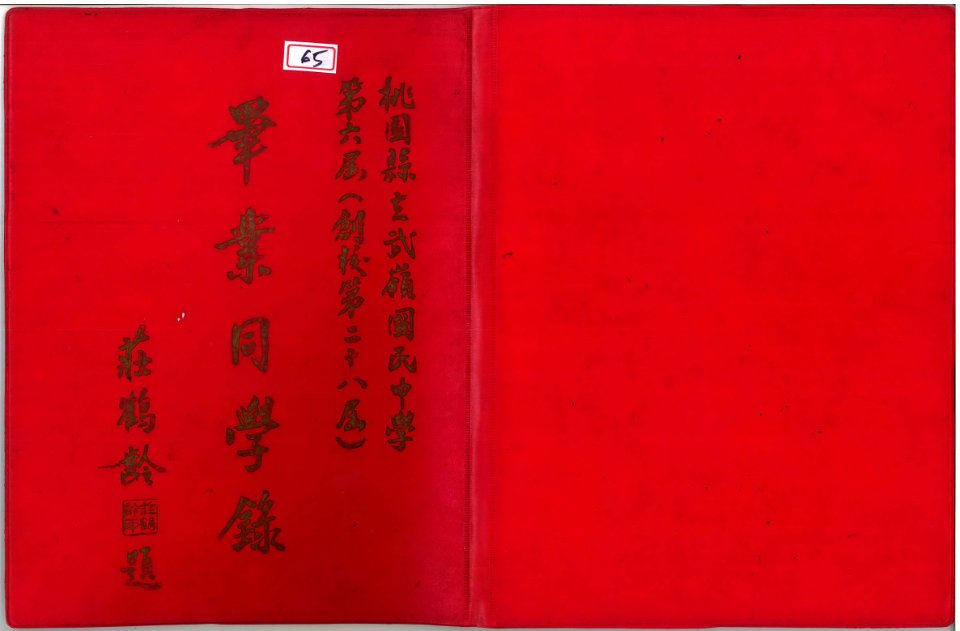 65
桃園縣立武嶺國民中學
第六屆(創校第二十八屆)
畢業同學錄
莊鶴齡
題